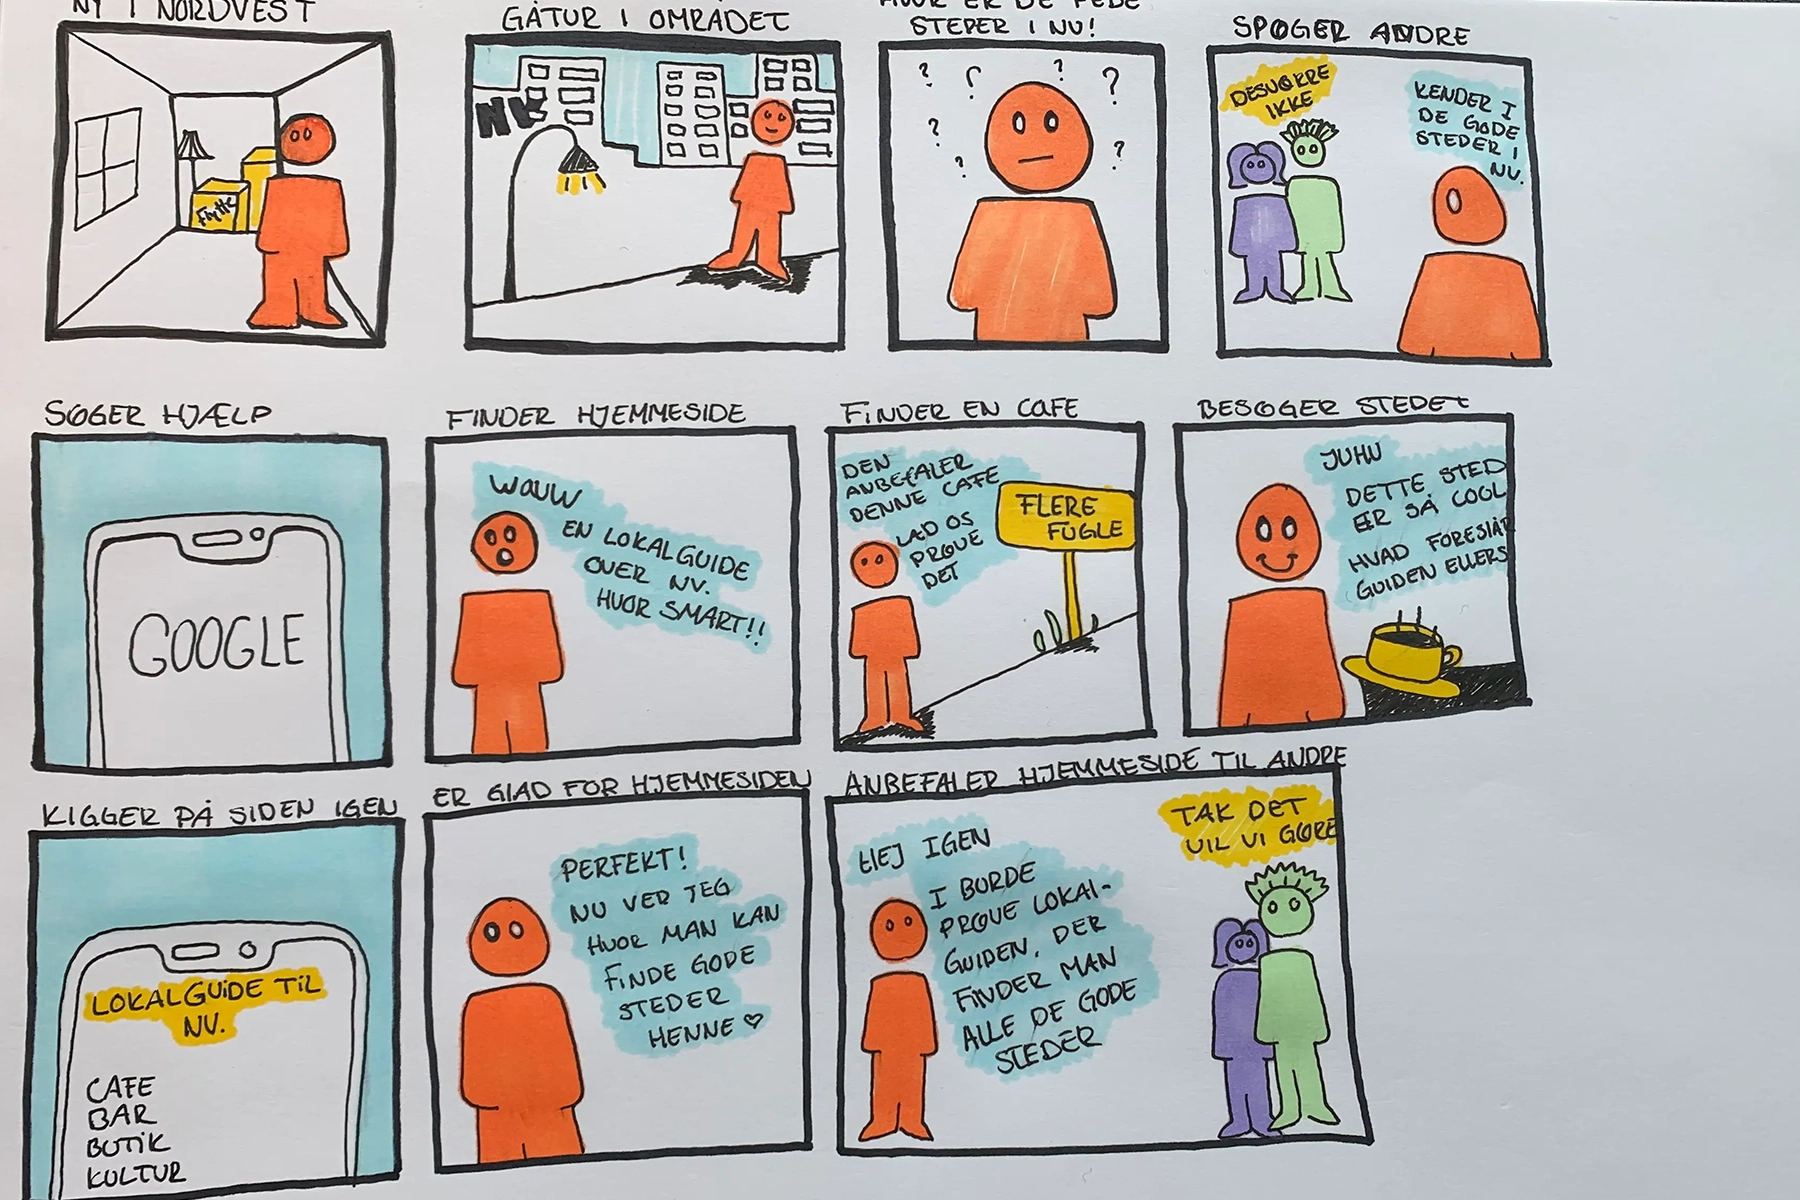 NY I NORDVEST
GÅTUR I OMRÅDET
HVOR ER DE FEDE
STEDER I NV!
SPØGER ANDRE
Flytte
NV
? ? ? ?
? ?
? ?
DESVÆRRE
IKKE
KENDER I
DE GODE
STEDER I
NV.
SØGER HJÆLP
GOOGLE
FINDER HJEMMESIDE
WOUW
EN LOKALGUIDE
OVER NV.
HVOR SMART!!
FINDER EN CAFE
DEN
ANBEFALER
DENNE CAFE
LAD OS
PRØVE
DET
FLERE
FUGLE
BESØGER STEDET
JUHU
DETTE STED
ER SÅ COOL
HVAD FORESLÅR
GUIDEN ELLERS
KIGGER PÅ SIDEN IGEN
LOKALGUIDE TIL
NV.
CAFE
BAR
BUTIK
KULTUR
ER GLAD FOR HJEMMESIDEN
PERFEKT!
NU VED JEG
HVOR MAN KAN
FINDE GODE
STEDER
HENNE ♡
ANBEFALER HJEMMESIDE TIL ANDRE
HEJ IGEN
I BURDE
PRØVE LOKAL-
GUIDEN, DER
FINDER MAN
ALLE DE GODE
STEDER
TAK DET
VIL VI GØRE